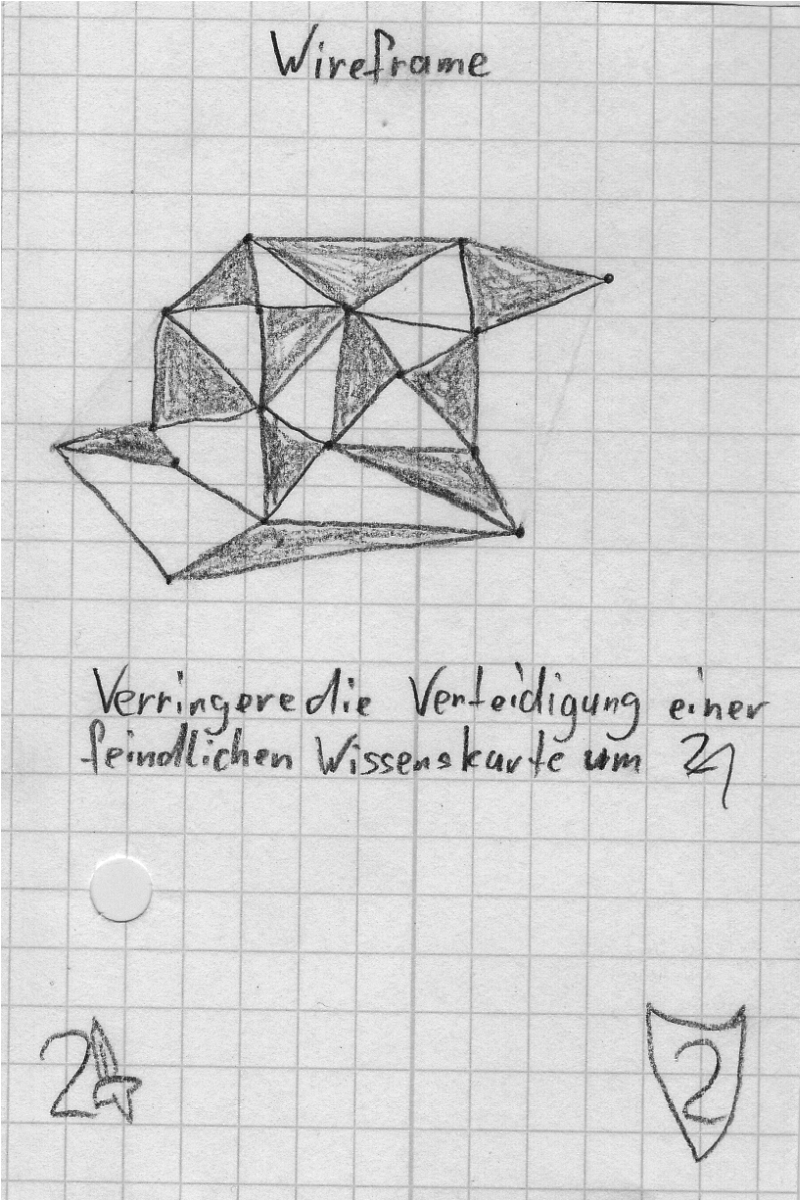 Wireframe
Verringere die Verteidigung einer
feindlichen Wissenskarte um
2
2